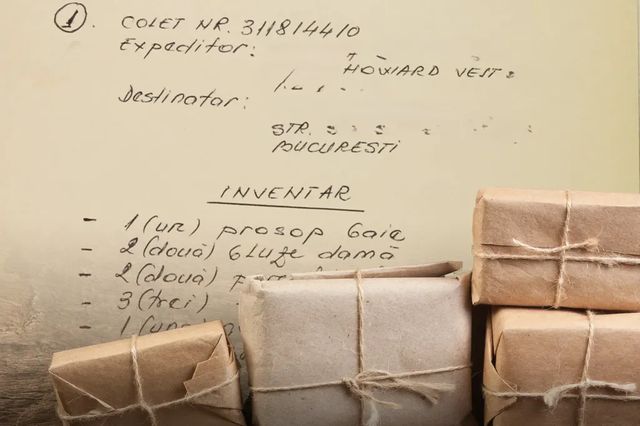 1. COLET NR. 311814410
Expeditor:
HOWARD VEST
Destinatar:
STR.
BUCURESTI
INVENTAR
- 1 (un) prosop baie
- 2 (două) bluze damă
- 2 (două)
- 3 (trei)
- 1 (una)